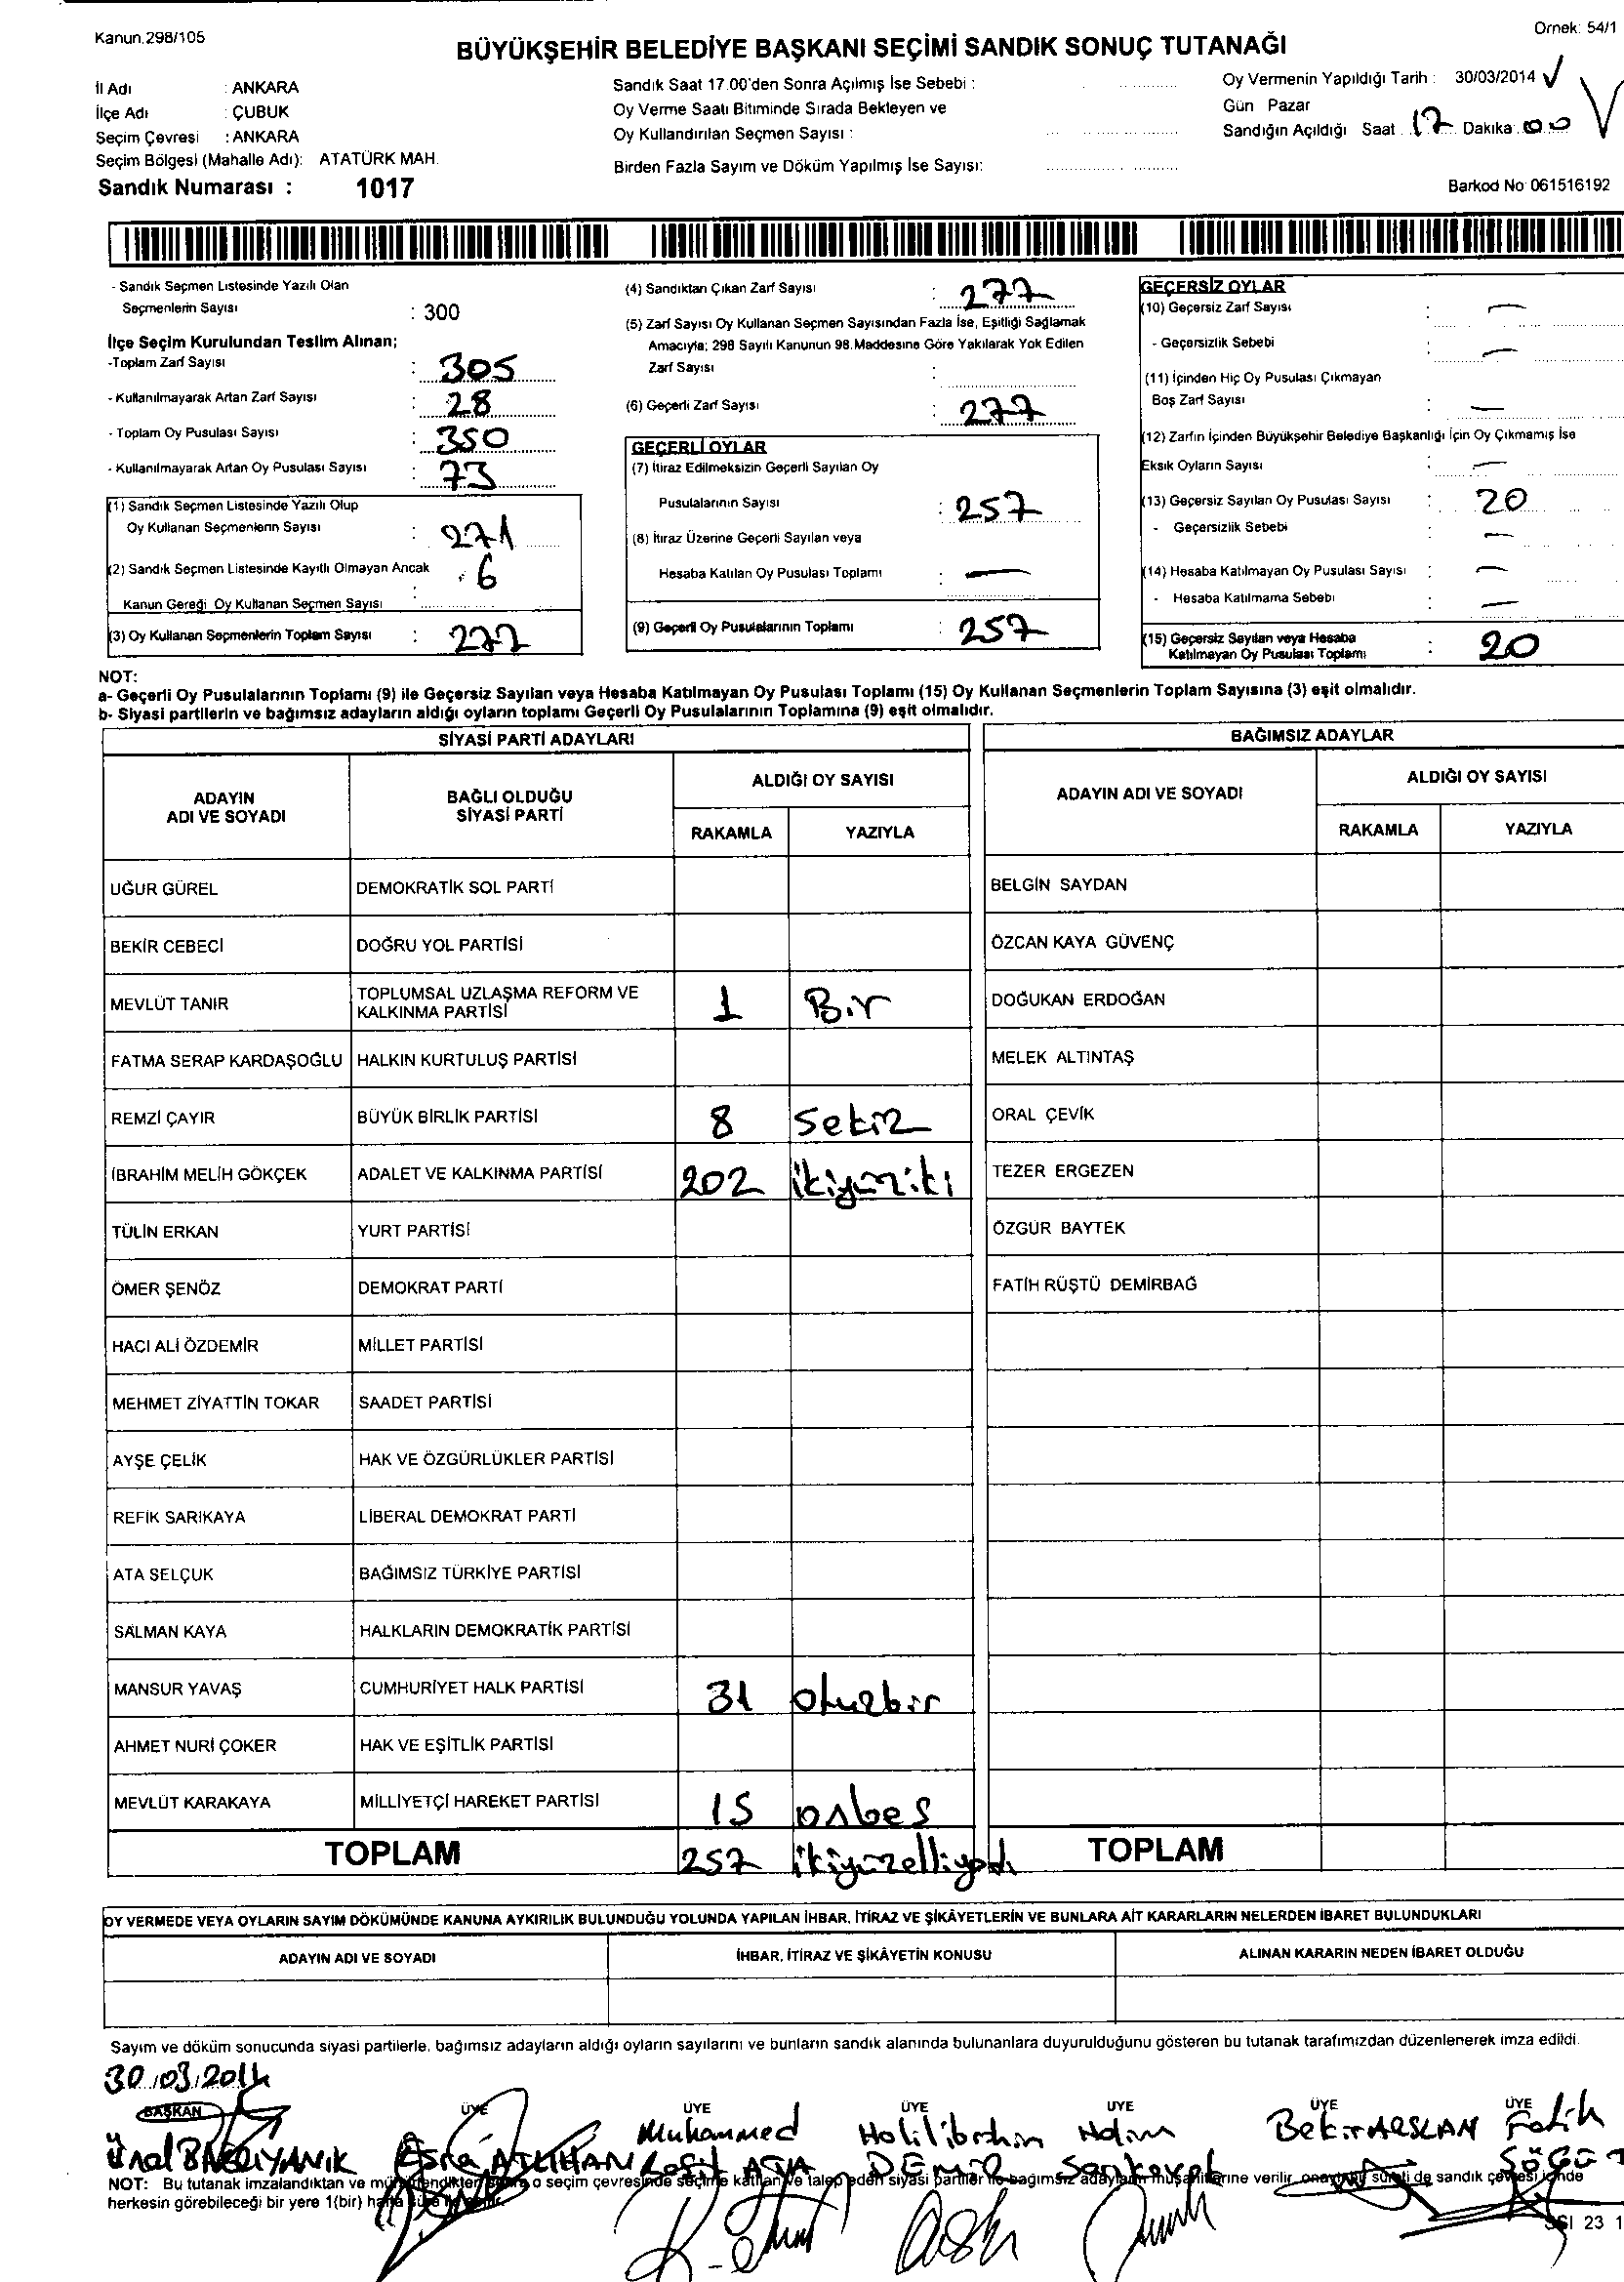 Kanun.298/105
Örnek: 54/1
BÜYÜKŞEHİR BELEDİYE BAŞKANI SEÇİMİ SANDIK SONUÇ TUTANAĞI
İl Adı : ANKARA
İlçe Adı : ÇUBUK
Seçim Çevresi : ANKARA
Seçim Bölgesi (Mahalle Adı): ATATÜRK MAH.
Sandık Numarası : 1017
Sandık Saat 17.00'den Sonra Açılmış İse Sebebi :
Oy Verme Saati Bitiminde Sırada Bekleyen ve
Oy Kullandırılan Seçmen Sayısı :
Birden Fazla Sayım ve Döküm Yapılmış İse Sayısı:
Oy Vermenin Yapıldığı Tarih : 30/03/2014
Gün Pazar
Sandığın Açıldığı Saat 17 Dakika 00
Barkod No 061516192
- Sandık Seçmen Listesinde Yazılı Olan
Seçmenlerin Sayısı : 300
İlçe Seçim Kurulundan Teslim Alınan;
-Toplam Zarf Sayısı : 305
- Kullanılmayarak Artan Zarf Sayısı : 28
- Toplam Oy Pusulası Sayısı : 350
- Kullanılmayarak Artan Oy Pusulası Sayısı : 73
(1) Sandık Seçmen Listesinde Yazılı Olup
Oy Kullanan Seçmenlerin Sayısı : 271
(2) Sandık Seçmen Listesinde Kayıtlı Olmayan Ancak
Kanun Gereği Oy Kullanan Seçmen Sayısı : 6
(3) Oy Kullanan Seçmenlerin Toplam Sayısı : 277
(4) Sandıktan Çıkan Zarf Sayısı : 277
(5) Zarf Sayısı Oy Kullanan Seçmen Sayısından Fazla İse, Eşitliği Sağlamak
Amacıyla; 298 Sayılı Kanunun 98.Maddesine Göre Yakılarak Yok Edilen
Zarf Sayısı :
(6) Geçerli Zarf Sayısı : 277
GEÇERLİ OYLAR
(7) İtiraz Edilmeksizin Geçerli Sayılan Oy
Pusulalarının Sayısı : 257
(8) İtiraz Üzerine Geçerli Sayılan veya
Hesaba Katılan Oy Pusulası Toplamı : —
(9) Geçerli Oy Pusulalarının Toplamı : 257
GEÇERSİZ OYLAR
(10) Geçersiz Zarf Sayısı : —
- Geçersizlik Sebebi : —
(11) İçinden Hiç Oy Pusulası Çıkmayan
Boş Zarf Sayısı : —
(12) Zarfın İçinden Büyükşehir Belediye Başkanlığı İçin Oy Çıkmamış İse
Eksik Oyların Sayısı : —
(13) Geçersiz Sayılan Oy Pusulası Sayısı : 20
- Geçersizlik Sebebi : —
(14) Hesaba Katılmayan Oy Pusulası Sayısı : —
- Hesaba Katılmama Sebebi : —
(15) Geçersiz Sayılan veya Hesaba
Katılmayan Oy Pusulası Toplamı : 20
NOT:
a- Geçerli Oy Pusulalarının Toplamı (9) ile Geçersiz Sayılan veya Hesaba Katılmayan Oy Pusulası Toplamı (15) Oy Kullanan Seçmenlerin Toplam Sayısına (3) eşit olmalıdır.
b- Siyasi partilerin ve bağımsız adayların aldığı oyların toplamı Geçerli Oy Pusulalarının Toplamına (9) eşit olmalıdır.
SİYASİ PARTİ ADAYLARI
ADAYIN ADI VE SOYADI
BAĞLI OLDUĞU SİYASİ PARTİ
ALDIĞI OY SAYISI
RAKAMLA YAZIYLA
UĞUR GÜREL DEMOKRATİK SOL PARTİ
BEKİR CEBECİ DOĞRU YOL PARTİSİ
MEVLÜT TANIR TOPLUMSAL UZLAŞMA REFORM VE KALKINMA PARTİSİ 1 Bir
FATMA SERAP KARDAŞOĞLU HALKIN KURTULUŞ PARTİSİ
REMZİ ÇAYIR BÜYÜK BİRLİK PARTİSİ 8 Sekiz
İBRAHİM MELİH GÖKÇEK ADALET VE KALKINMA PARTİSİ 202 ikiyüziki
TÜLİN ERKAN YURT PARTİSİ
ÖMER ŞENÖZ DEMOKRAT PARTİ
HACI ALİ ÖZDEMİR MİLLET PARTİSİ
MEHMET ZİYATTİN TOKAR SAADET PARTİSİ
AYŞE ÇELİK HAK VE ÖZGÜRLÜKLER PARTİSİ
REFİK SARIKAYA LİBERAL DEMOKRAT PARTİ
ATA SELÇUK BAĞIMSIZ TÜRKİYE PARTİSİ
SALMAN KAYA HALKLARIN DEMOKRATİK PARTİSİ
MANSUR YAVAŞ CUMHURİYET HALK PARTİSİ 31 otuzbir
AHMET NURİ ÇOKER HAK VE EŞİTLİK PARTİSİ
MEVLÜT KARAKAYA MİLLİYETÇİ HAREKET PARTİSİ 15 onbeş
TOPLAM 257 ikiyüzelliyedi
BAĞIMSIZ ADAYLAR
ADAYIN ADI VE SOYADI
ALDIĞI OY SAYISI
RAKAMLA YAZIYLA
BELGİN SAYDAN
ÖZCAN KAYA GÜVENÇ
DOĞUKAN ERDOĞAN
MELEK ALTINTAŞ
ORAL ÇEVİK
TEZER ERGEZEN
ÖZGÜR BAYTEK
FATİH RÜŞTÜ DEMİRBAĞ
TOPLAM
OY VERMEDE VEYA OYLARIN SAYIM DÖKÜMÜNDE KANUNA AYKIRILIK BULUNDUĞU YOLUNDA YAPILAN İHBAR, İTİRAZ VE ŞİKÂYETLERİN VE BUNLARA AİT KARARLARIN NELERDEN İBARET BULUNDUKLARI
ADAYIN ADI VE SOYADI İHBAR, İTİRAZ VE ŞİKÂYETİN KONUSU ALINAN KARARIN NEDEN İBARET OLDUĞU
Sayım ve döküm sonucunda siyasi partilerle, bağımsız adayların aldığı oyların sayılarını ve bunların sandık alanında bulunanlara duyurulduğunu gösteren bu tutanak tarafımızdan düzenlenerek imza edildi.
30.03.2014
BAŞKAN ÜYE ÜYE ÜYE ÜYE ÜYE ÜYE
Ünal Esra ATLIHAN Muhammed Halilibrahim DEMİR Bekir ARSLAN Fatih
NOT: Bu tutanak imzalandıktan ve mühürlendikten sonra o seçim çevresinde seçime katılan ve talep eden siyasi partiler ile bağımsız adayların müşahitlerine verilir, onaylı bir sureti de sandık çevresi içinde
herkesin görebileceği bir yere 1(bir) hafta süre ile asılır.